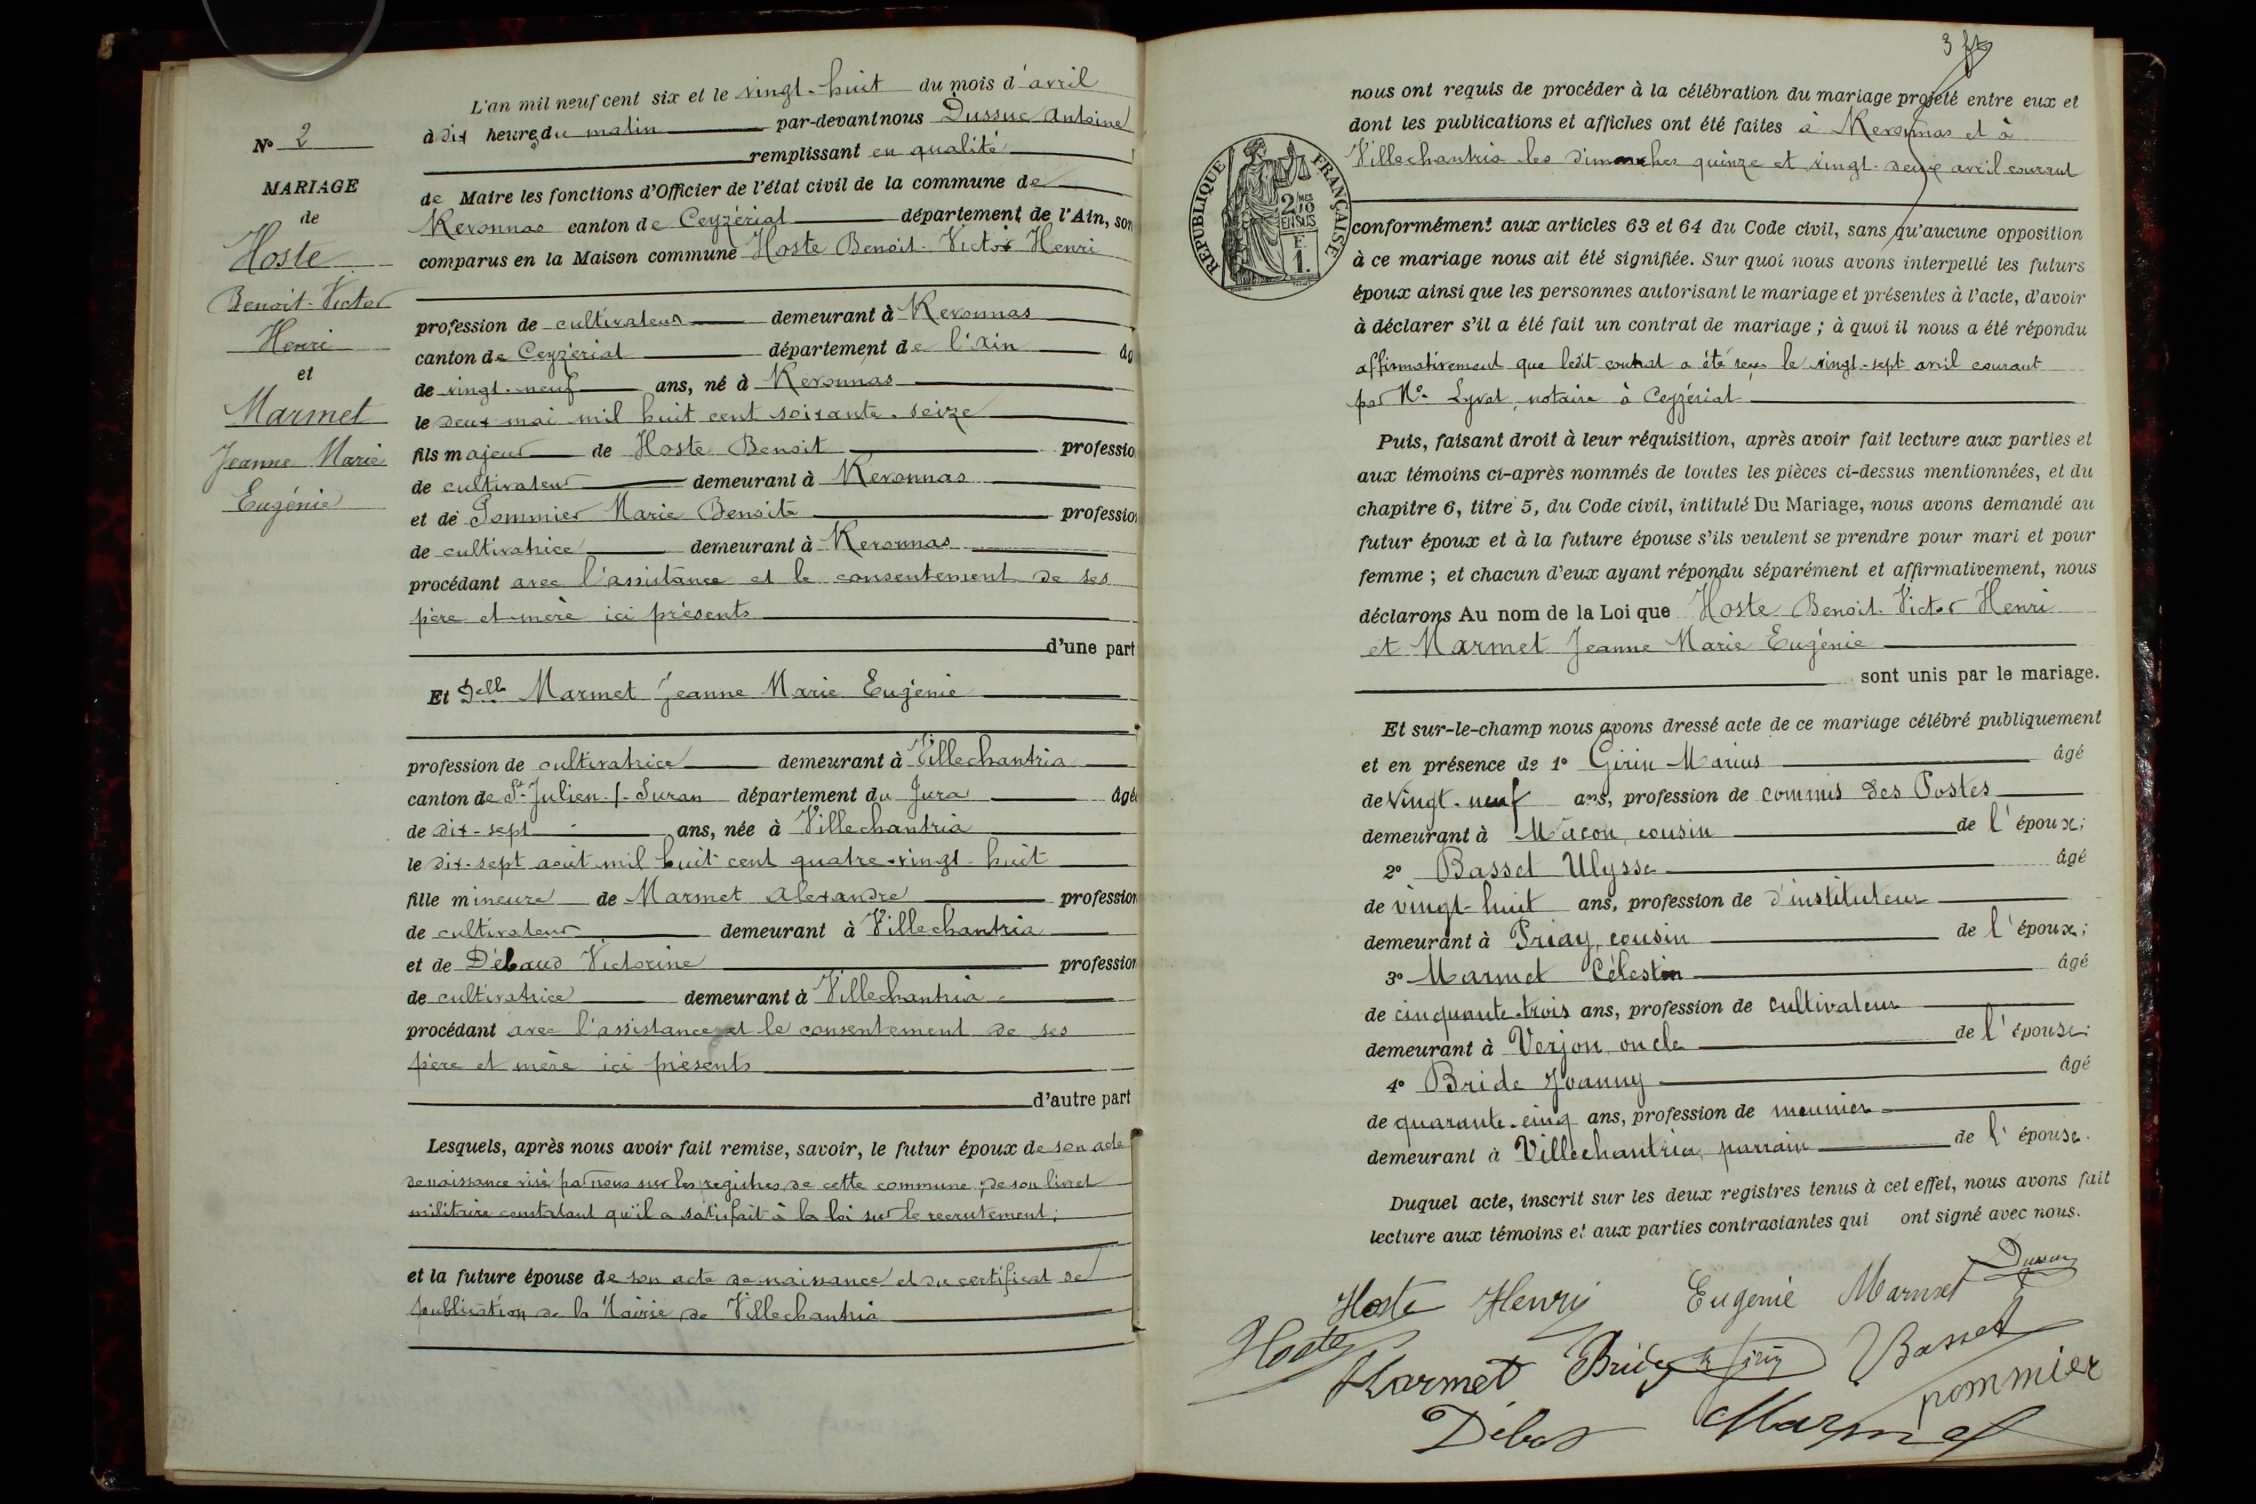 N° 2
MARIAGE
de
Hoste
Benoit-Victor
Henri
et
Marmet
Jeanne Marie
Eugénie
L'an mil neuf cent six et le vingt-huit du mois d'avril
à dix heures du matin par-devant nous Dussuc Antoine
remplissant en qualité
de Maire les fonctions d'Officier de l'état civil de la commune de
Revonnas canton de Ceyzériat département de l'Ain, son
comparus en la Maison commune Hoste Benoit-Victor Henri
profession de cultivateur demeurant à Revonnas
canton de Ceyzériat département de l'Ain âg
de vingt-neuf ans, né à Revonnas
le deux mai mil huit cent soixante-seize
fils majeur de Hoste Benoit professio
de cultivateur demeurant à Revonnas
et de Pommier Marie Benoite profession
de cultivatrice demeurant à Revonnas
procédant avec l'assistance et le consentement de ses
père et mère ici présents
d'une part
Et Delle Marmet Jeanne Marie Eugénie
profession de cultivatrice demeurant à Villechantria
canton de St-Julien-s-Suran département du Jura âgée
de dix-sept ans, née à Villechantria
le dix-sept août mil huit cent quatre-vingt-huit
fille mineure de Marmet Alexandre profession
de cultivateur demeurant à Villechantria
et de Débaud Victorine profession
de cultivatrice demeurant à Villechantria
procédant avec l'assistance et le consentement de ses
père et mère ici présents
d'autre part
Lesquels, après nous avoir fait remise, savoir, le futur époux de son acte
de naissance visé par nous sur les registres de cette commune, de son livret
militaire constatant qu'il a satisfait à la loi sur le recrutement;
et la future épouse de son acte de naissance et du certificat de
publication de la Mairie de Villechantria
3 f
RÉPUBLIQUE FRANÇAISE
2/10 MES
EN SUS
F.
1.
nous ont requis de procéder à la célébration du mariage projeté entre eux et
dont les publications et affiches ont été faites à Revonnas et à
Villechantria les dimanches quinze et vingt-deux avril courant
conformément aux articles 63 et 64 du Code civil, sans qu'aucune opposition
à ce mariage nous ait été signifiée. Sur quoi nous avons interpellé les futurs
époux ainsi que les personnes autorisant le mariage et présentes à l'acte, d'avoir
à déclarer s'il a été fait un contrat de mariage; à quoi il nous a été répondu
affirmativement que ledit contrat a été reçu le vingt-sept avril courant
par Me Lyvet, notaire à Ceyzériat
Puis, faisant droit à leur réquisition, après avoir fait lecture aux parties et
aux témoins ci-après nommés de toutes les pièces ci-dessus mentionnées, et du
chapitre 6, titre 5, du Code civil, intitulé Du Mariage, nous avons demandé au
futur époux et à la future épouse s'ils veulent se prendre pour mari et pour
femme; et chacun d'eux ayant répondu séparément et affirmativement, nous
déclarons Au nom de la Loi que Hoste Benoit-Victor Henri
et Marmet Jeanne Marie Eugénie
sont unis par le mariage.
Et sur-le-champ nous avons dressé acte de ce mariage célébré publiquement
et en présence de 1° Girin Marius âgé
de vingt-neuf ans, profession de commis des Postes
demeurant à Mâcon, cousin de l'époux;
2° Basset Ulysse âgé
de vingt-huit ans, profession de d'instituteur
demeurant à Priay, cousin de l'époux;
3° Marmet Célestin âgé
de cinquante-trois ans, profession de cultivateur
demeurant à Verjon, oncle de l'épouse;
4° Bride Joanny âgé
de quarante-cinq ans, profession de meunier
demeurant à Villechantria, parrain de l'épouse.
Duquel acte, inscrit sur les deux registres tenus à cet effet, nous avons fait
lecture aux témoins et aux parties contractantes qui ont signé avec nous.
Hoste Henry Eugénie Marmet Dussuc
Hoste Marmet Bride Girin Basset
Débot Marmet pommier